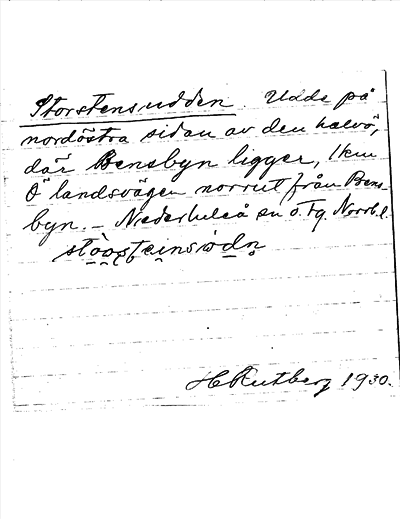 Storstensudden. Udde på
nordöstra sidan av den halvö,
där Bensbyn ligger, 1 km
Ö landsvägen norrut från Bens-
byn. – Nederluleå sn o. Fg. Norrb. l.
H Rutberg 1930.